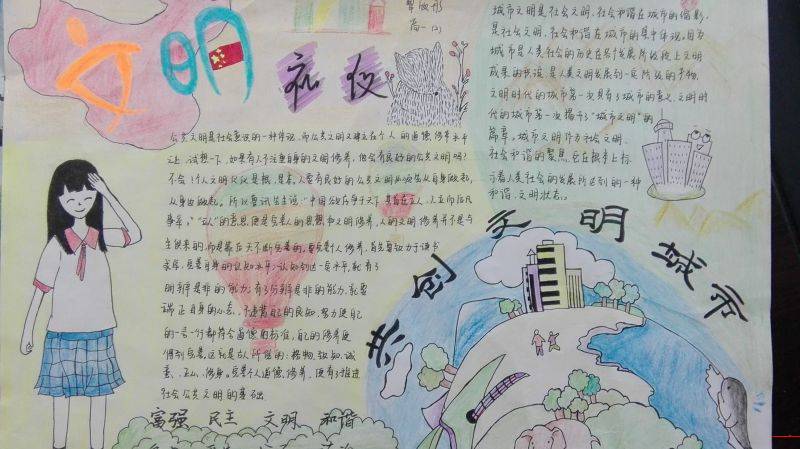 文明
礼仪
高一(2)
公共文明是社会意识的一种体现,而公共文明又建立在个人的道德修养水平
之上。试想一下,如果每个人不注重自身的文明修养,但会有良好的公共文明吗?
不会!个人文明礼仪是根、是本。人要有良好的公共文明必须先从自身做起,
从身边做起。所以鲁迅先生说:“中国欲存争于天下,其首在立人,人立而后凡
事举。”“立人”的意思,便是完善人的思想和文明修养,人的文明修养并不是与
生俱来的,而是靠后天不断完善的。要完善个人修养,首先要致力于读书
求学,完善自身的认知水平;认知到达一定水平,就有了
明辨是非的能力;有了分辨是非的能力,就要
端正自身的心态,不违背自己的良知,努力使自己
的一言一行都符合道德的标准,自己的修养便
得到完善,这就是古人所谓的:格物、致知、诚
意、正心、修身。完善个人道德修养,便有了推进
社会公共文明的基础
城市文明是社会文明、社会和谐在城市的缩影,
是社会文明、社会和谐在城市的集中体现。因为
城市是人类社会的历史在其发展阶段上文明
成果的积淀,是人类文明发展到一定阶段的产物。
文明时代的城市第一次具有了城市的意义,文明时
代的城市第一次揭示了“城市文明”的
篇章。城市文明作为社会文明、
社会和谐的聚焦,它在根本上标
示着人类社会的发展所达到的一种
和谐、文明状态。
共创文明城市
富强 民主 文明 和谐